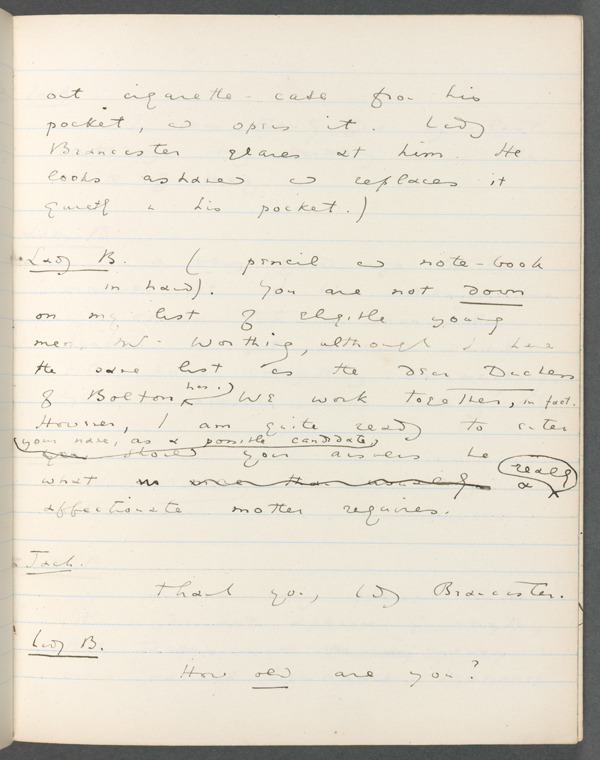 out cigarette-case from his
pocket, & opens it. Lady
Brancaster glares at him. He
looks ashamed & replaces it
quietly in his pocket.)
Lady B. ( pencil & note-book
in hand). You are not down
on my list of eligible young
men, Mr. Worthing, although I have
the same list as the dear Duchess
of Bolton has.) We work together, in fact.
However, I am quite ready to enter
your name, as a possible candidate,
should your answers be
what more than usually really
a
affectionate mother requires.
Jack.
Thank you, Lady Brancaster.
Lady B.
How old are you?